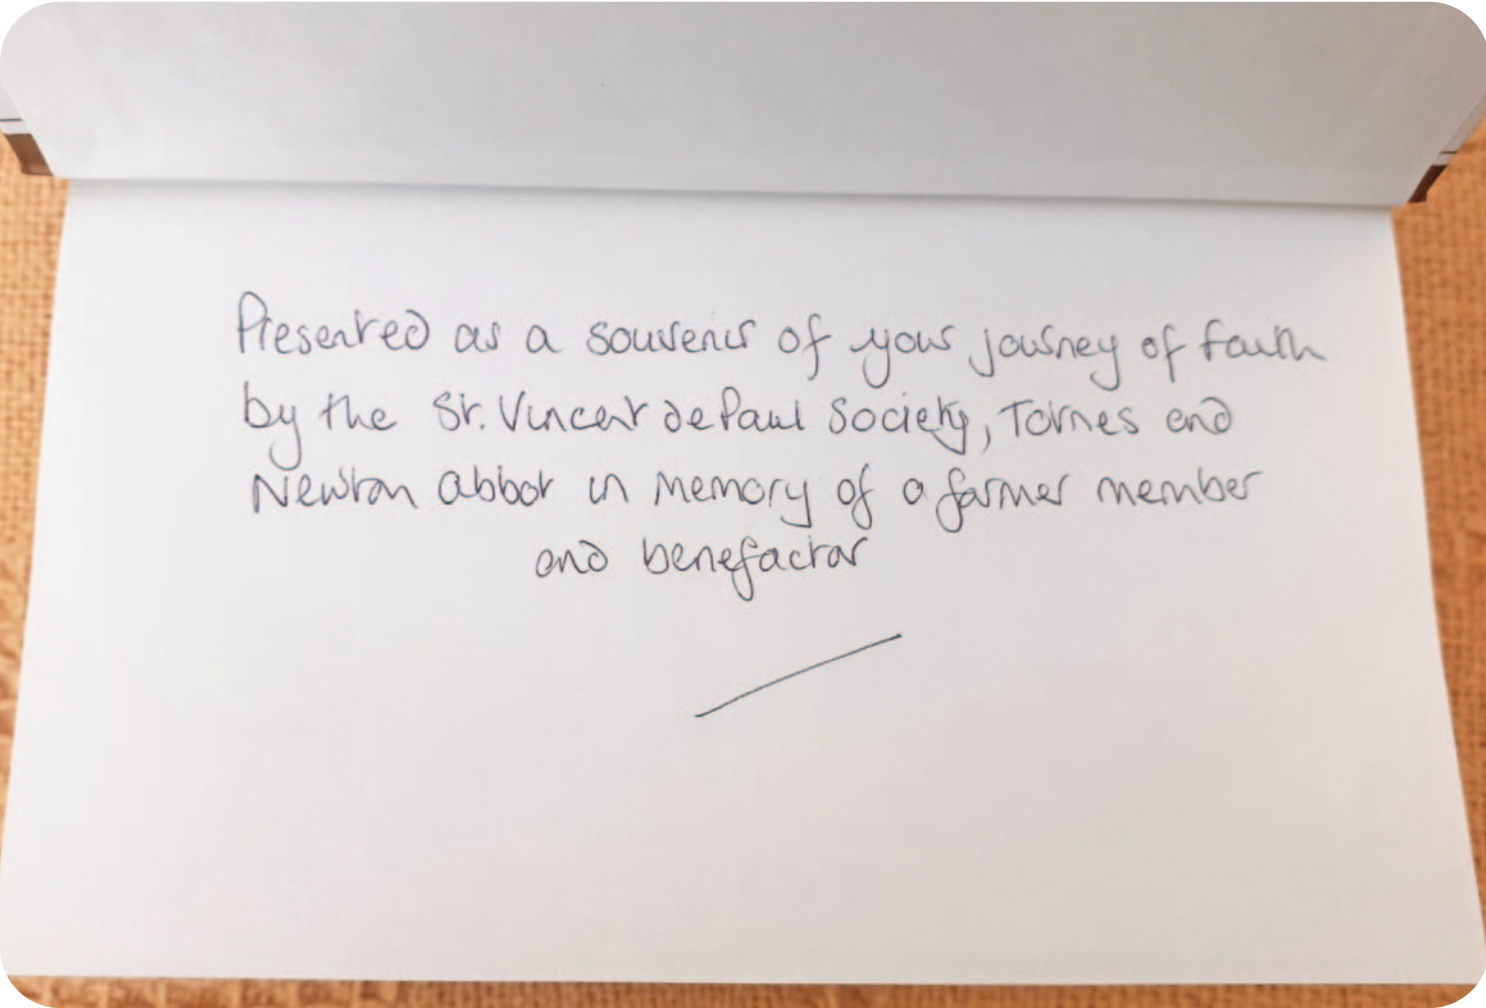 Presented as a souvenir of your journey of faith
by the St. Vincent de Paul Society, Totnes and
Newton Abbot in memory of a former member
and benefactor